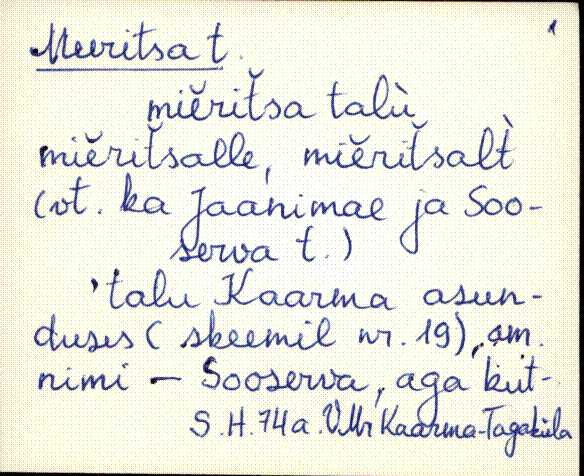 Meeritsa t.
1
miĕrit̆sa talù
miĕrit̆salle, miĕrit̆salt̀
(vt. ka Jaanimäe ja Soo-
serva t.)
'talu Kaarma asun-
duses (skeemil nr. 19), am.
nimi – Sooserva, aga küt-
S.H. 74a. VMr Kaarma-Tagaküla